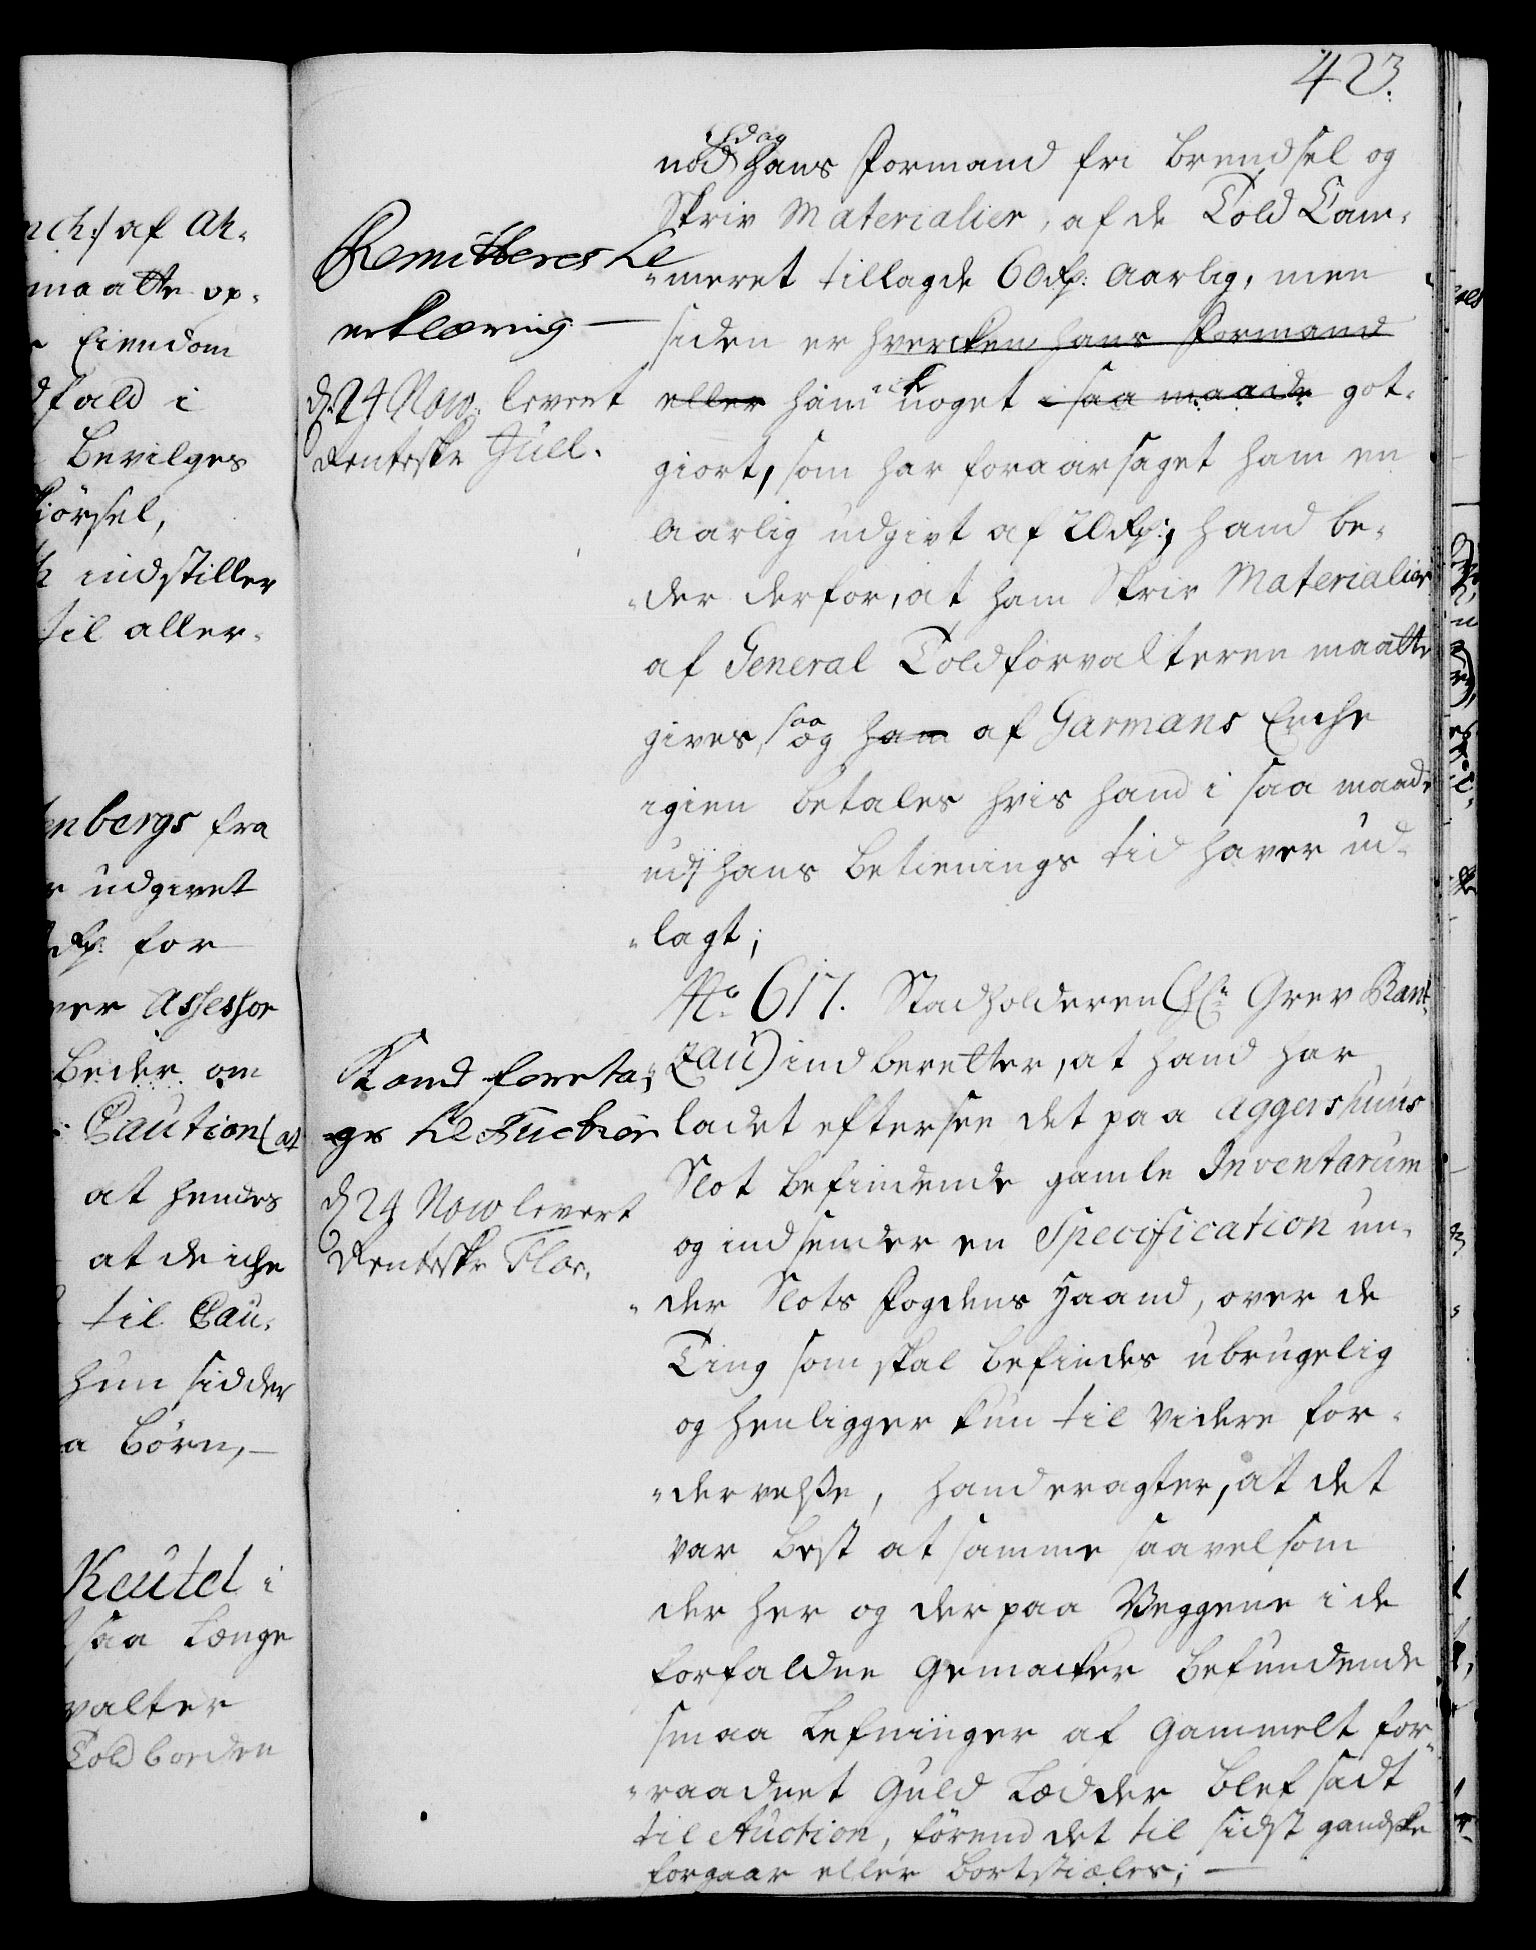 423.
nch:/ af Ak-
maatte op-
r Eiendom
dfald i
Bevilges
Kiörsel,
k indstiller
til aller-
enbergs fra
er udgivet
rdr: for
ver Assessor
beder om
Caution (at
at hendes
at de iche
til Cau-
hun sidder
a Börn,
Keutel i
saa længe
valter
Toldboeden
Remitteres til
erklæring
d: 24 Now: levert
Renteskr Juel.
Kand foreta-
ges til Auction
d 24 Now levert
Renteskr Flor.
nød hans Formand fri brendsel og
Skriv Materialier, af de Told Cam-
meret tillagde 60 rdr: aarlig, men
siden er hvercken hans Formand
eller ham ick noget i saa maade got-
giort, som har foraarsaget ham en
aarlig udgivt af 20 rdr:, hand be-
der derfor, at ham Skriv Materialier
af General Toldforvalteren maatte
gives, saa og ham af Garmans Enche
igien betales hvis hand i saa maade
udj hans betienings tid haver ud-
lagt;
No 617. Stadholderen (Hr Grev Rant-
zau) indberetter, at hand har
ladet eftersee det paa Aggershuus
Slot befindende gamle Inventarium
og indsender en Specification un-
der Slots Fogdens Haand, over de
Ting som skal befindes ubrugelig
og henligger kun til videre for-
dervelse, hand eragter, at det
var best at samme saavelsom
der her og der paa Veggene i de
forfaldne Gemacker befundende
smaa Lefninger af gammelt for-
raadnet Guld Lædder blef sadt
til Auction, förend det til sidst gandske
forgaar eller bortstiæles;